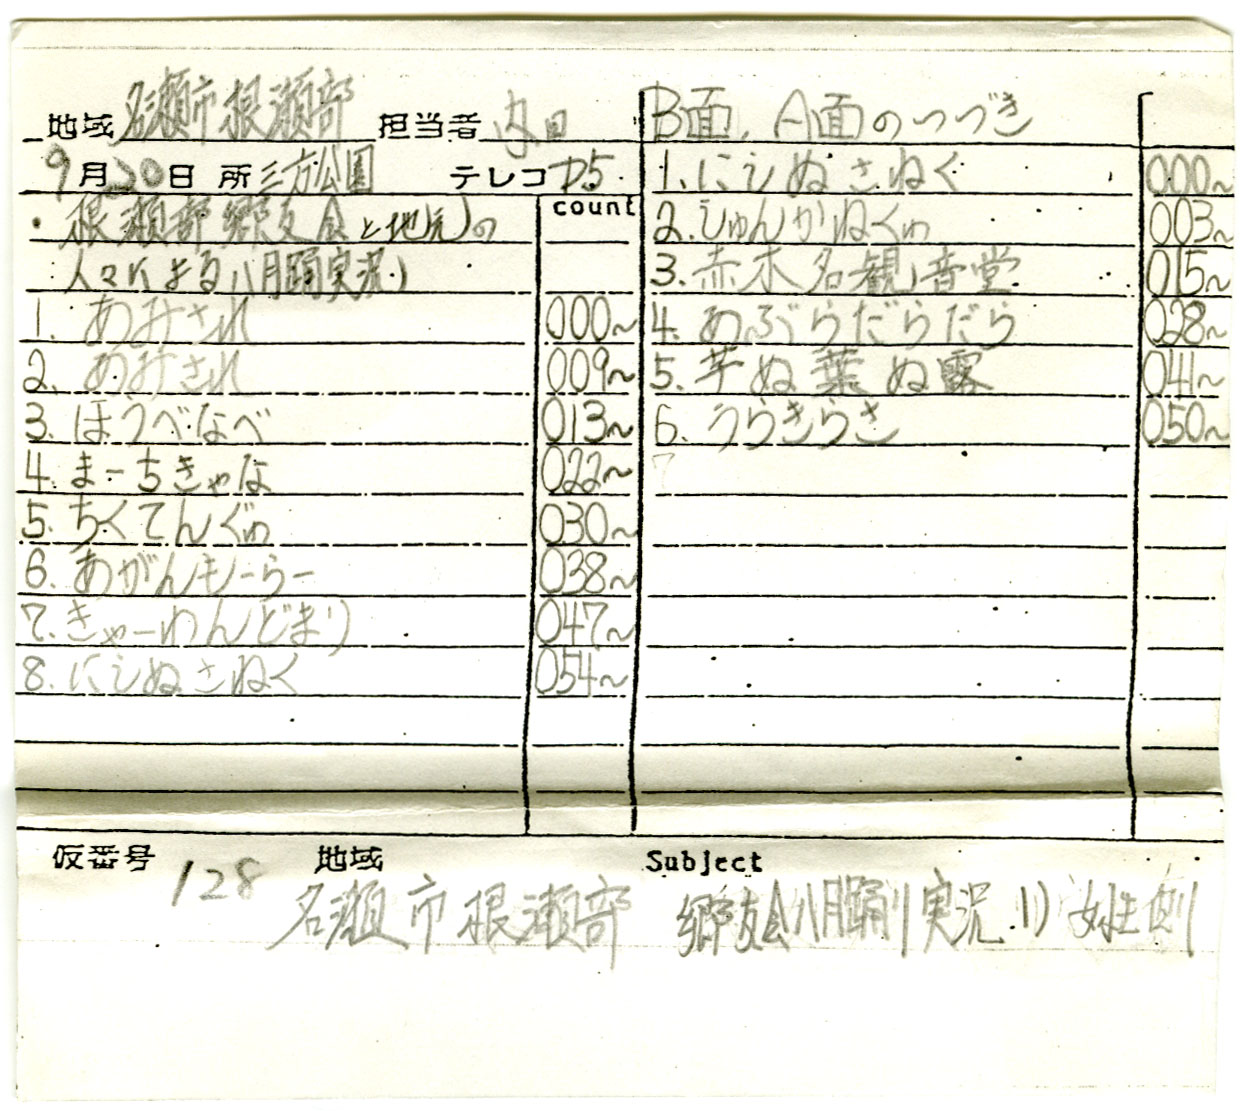 地域 名瀬市根瀬部 担当者 内田
9月20日 所 三方公園 テレコ D5
count
・根瀬部郷友会と地元の
人々による八月踊実況
1. あみされ 000~
2. あみされ 009~
3. ほうべなべ 013~
4. まーちきゃな 022~
5. ちくてんぐゎ 030~
6. あがんむーらー 038~
7. きゃーわんどまり 047~
8. にしぬさねく 054~
B面, A面のつづき
1. にしぬさねく 000~
2. しゅんかねくゎ 003~
3. 赤木名観音堂 015~
4. あぶらだらだら 028~
5. 芋ぬ葉ぬ露 041~
6. うらきらさ 050~
7
仮番号 地域 Subject
128 名瀬市根瀬部 郷友会八月踊り実況 1) 女性側